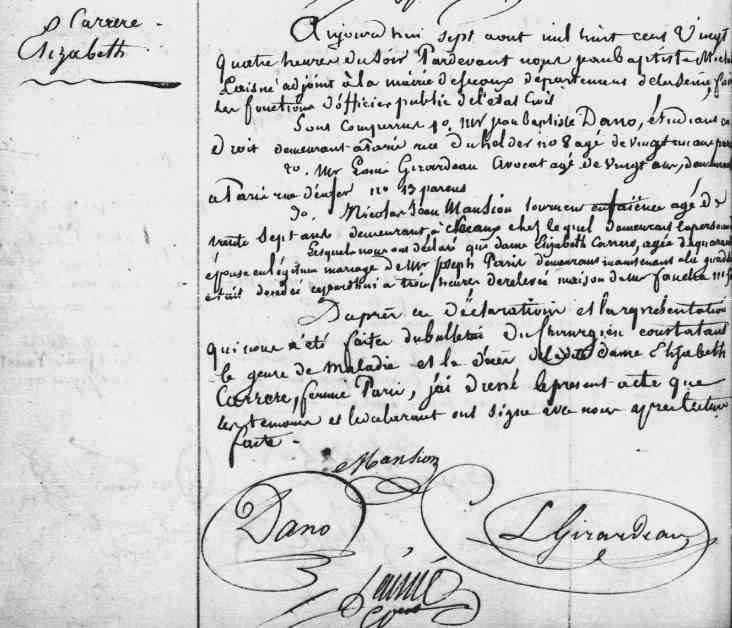 Carrere
Elizabeth
Aujourd'hui sept aout mil huit cent Vingt
quatre heures du soir Pardevant nous jean baptiste Michel
Laisné adjoint à la mairie de sceaux département de la seine,
les fonctions d'officier public de l'état Civil
Sont Comparus 1o. Mr jean baptiste Dano, étudiant en
Droit demeurant a Paris rue du holder no 8 agé de vingt un ans
2o. Mr Louis Girardeau Avocat agé de vingt ans, demeurant
a Paris rue d'enfer no 13 parens
3o. Nicolas Jean Mansion tourneur en faïence agé de
trente sept ans demeurant à sceaux chez lequel demeurait la personne
Lesquels nous ont déclaré que dame Elizabeth Carrere, agée de quarante
épouse en légitime mariage de Mr Joseph Parin demeurant maintenant
était décédée cejourd'hui a trois heures de relevée maison de
D'après ces déclarations et la représentation
qui nous a été faite du bulletin du chirurgien constatant
le genre de maladie et le décès de la dite dame Elizabeth
Carrere, femme Parin, j'ai dressé le present acte que
les temoins et le déclarant ont signé avec nous après lecture
faite -
Mansion
Dano
L Girardeau
Laisné